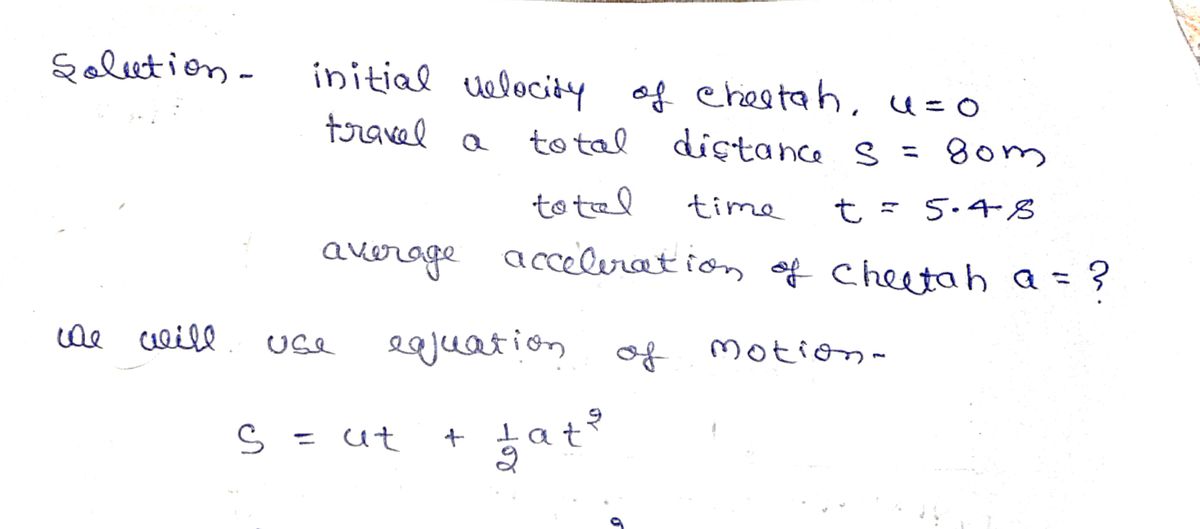 Solution - initial velocity of cheetah, u = 0
travel a total distance s = 80m
total time t = 5.4 s
average acceleration of cheetah a = ?
we will use equation of motion -
S = ut + 1/2 at²